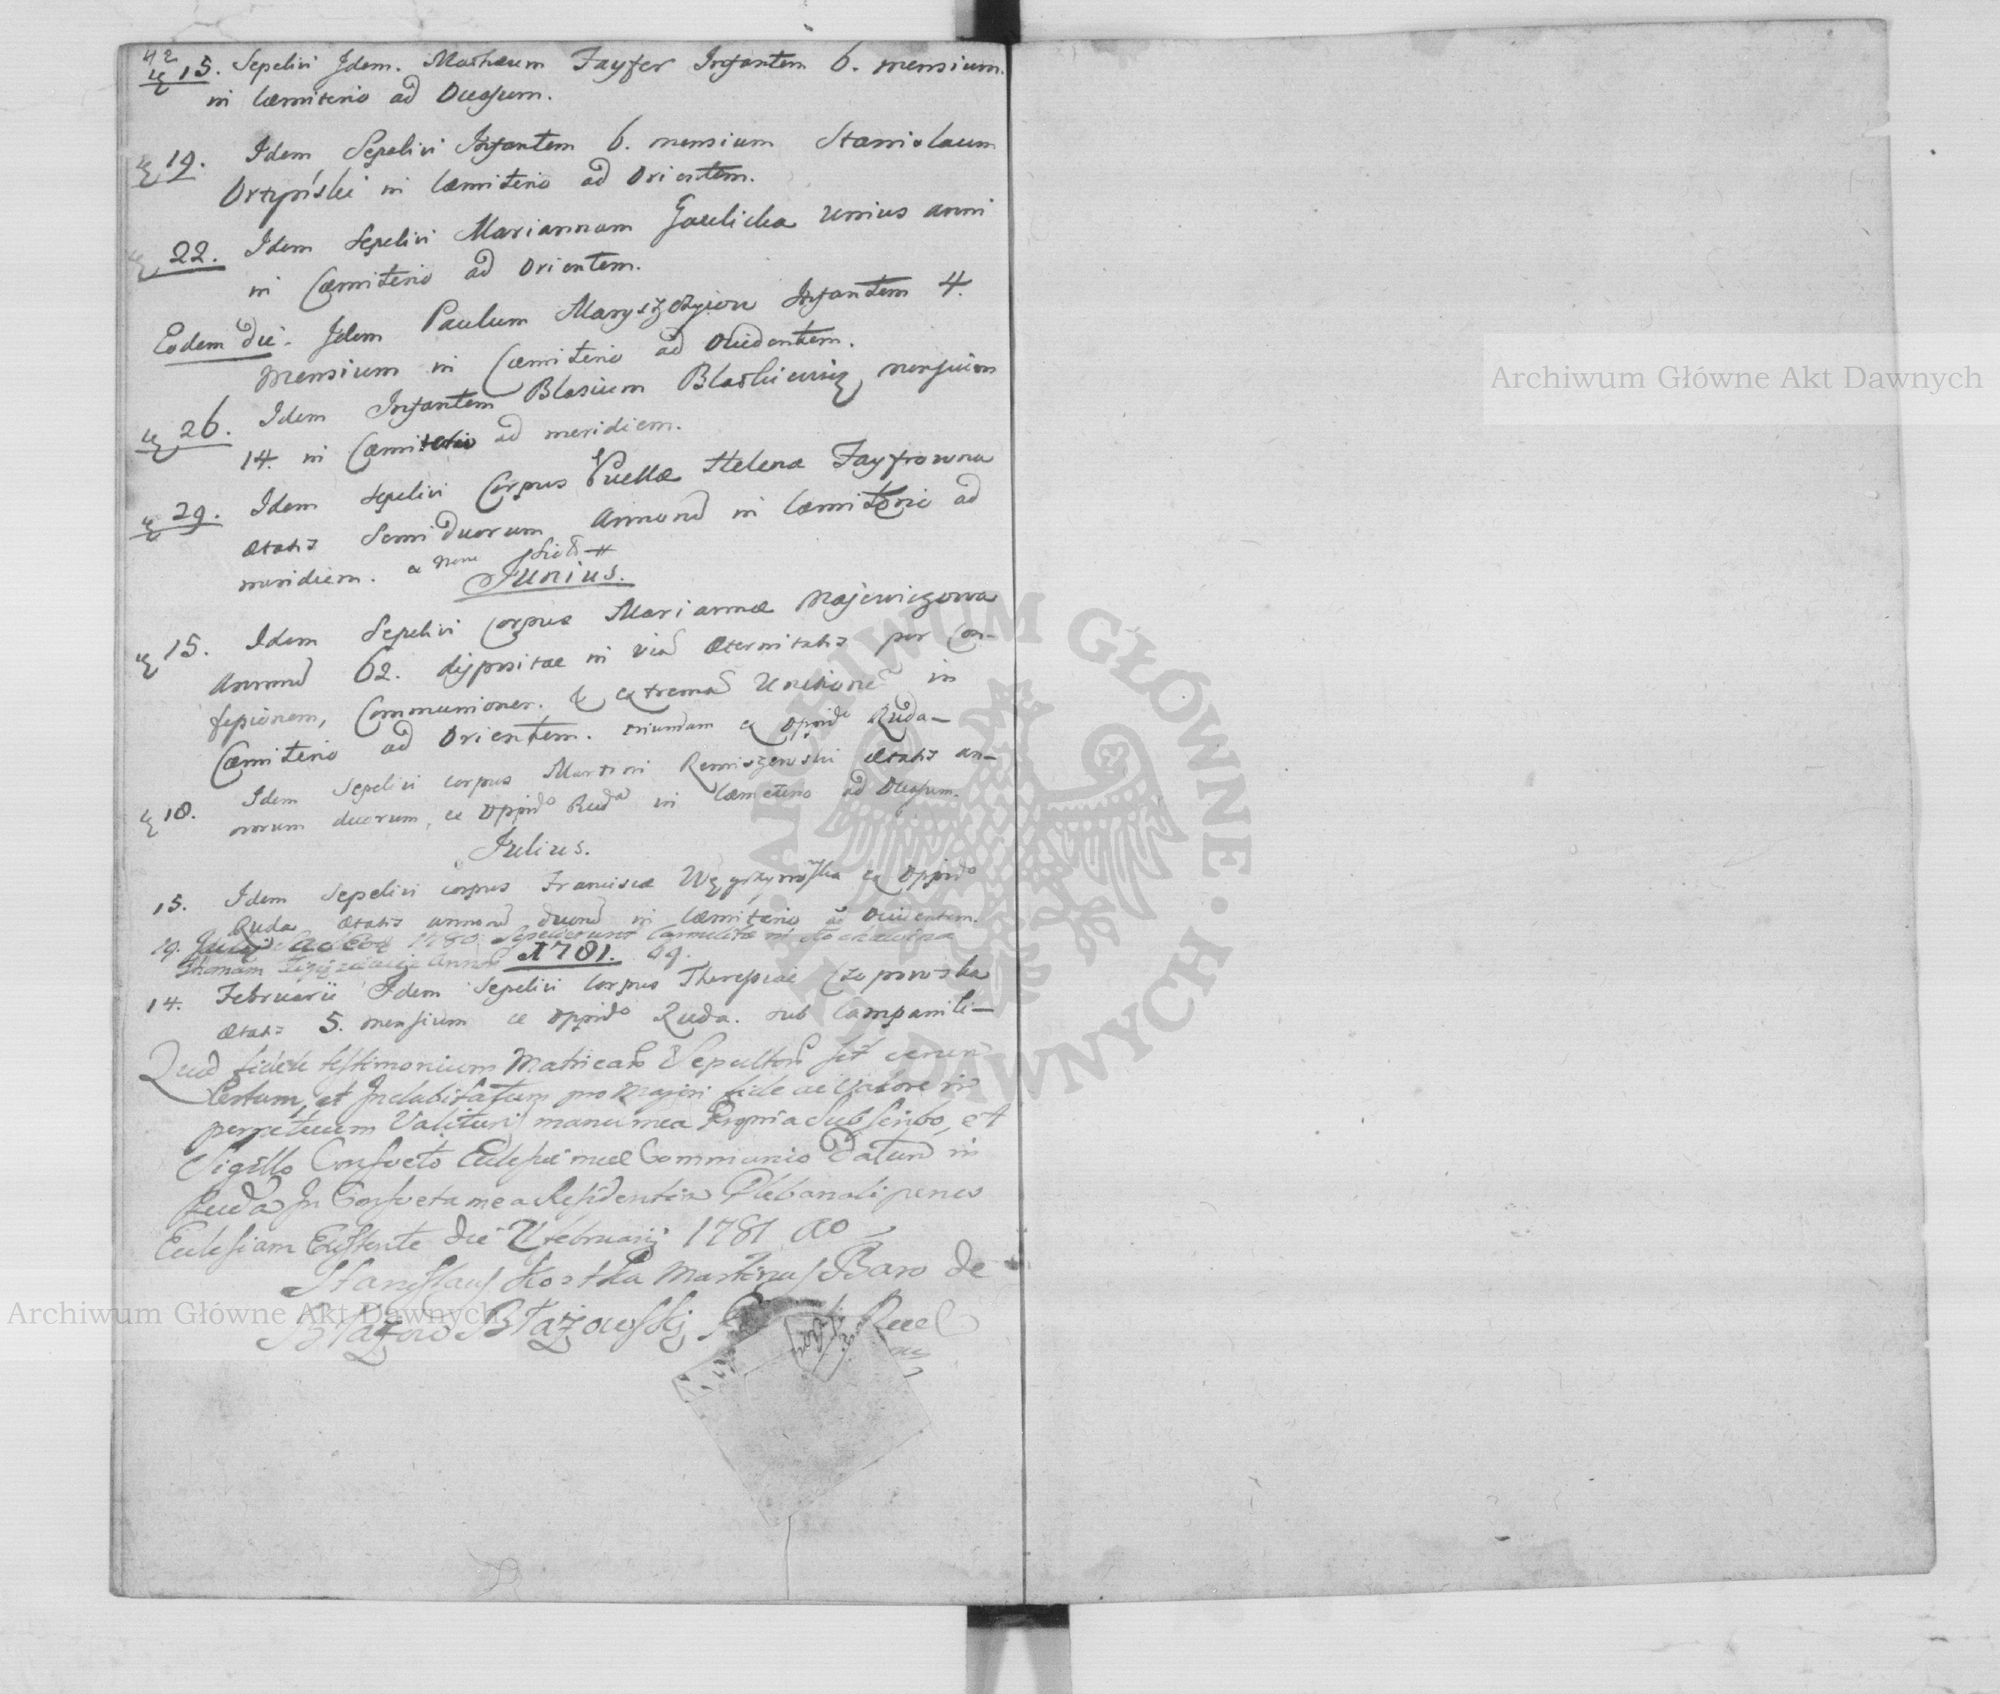 42
15. Sepelivi Idem. Mathæum Fayfer Infantem 6. mensium.
in Cæmiterio ad Occasum.
19. Idem Sepelivi Infantem 6. mensium Stanislaum
Ortyński in Cæmiterio ad Orientem.
22. Idem Sepelivi Mariannam Gaulicka unius anni
in Cæmiterio ad Orientem.
Eodem die. Idem Paulum Infantem 4.
mensium in Cæmiterio ad Occidentem.
26. Idem Infantem Blasium mensium
14. in Cæmiterio ad meridiem.
29. Idem Sepelivi Corpus Puellæ Helena Fayfrowna
ætatis Semi duorum in Cæmiterio ad
meridiem.
Junius.
15. Idem Sepelivi Corpus Mariannæ Majewiczowa
62. dispositae in via æternitatis per Con-
fessionem, Communionem. & extrema Unctione in
Cæmiterio ad Orientem. oriundam ex Oppido Ruda
18. Idem Sepelivi corpus Martini Remiszewski ætatis an-
norum duorum, ex Oppido Ruda in Cæmeterio ad Occasum.
Julius.
15. Idem Sepelivi corpus Franciscæ ex Oppido
Ruda ætatis in Cæmiterio ad Occidentem.
19. 1780 Sepelierunt Carmelitæ in
Thomam 69.
1781.
14. Februarii Idem Sepelivi Corpus Theressiae Czopowska
ætatis 5. mensium ex oppido Ruda. sub Campanili
Quod fidele testimonium
Certum, et Indubitatum pro Majori fide ac Valore in
perpetuum Valituri manu mea Propria Subscribo, et
Sigillo Consveto Eclesiæ meæ Communio Datum in
Ruda In Consveta mea Residentia Plebanali penes
Eclesiam Existente die Februarij 1781
Stanislaus Kostka Martinus Baro de
Błażow Błażowskj
Archiwum Główne Akt Dawnych
Archiwum Główne Akt Dawnych
ARCHIWUM GŁÓWNE
AKT DAWNYCH